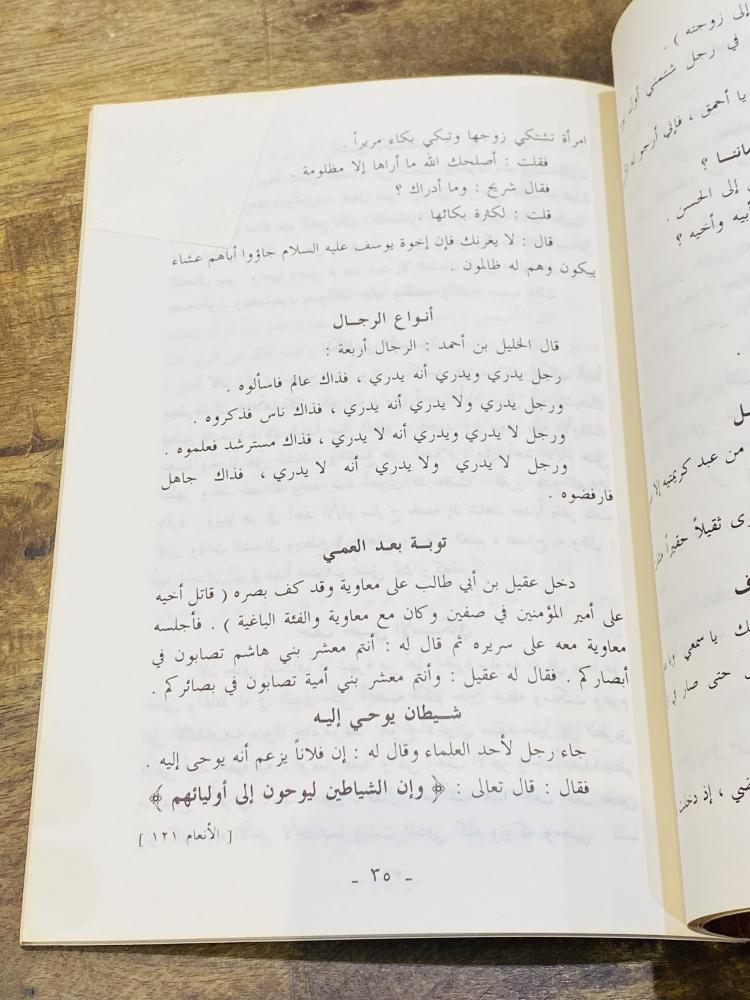 امرأة تشتكي زوجها وتبكي بكاء مريراً .
فقلت : أصلحك الله ما أراها إلا مظلومة .
فقال شريح : وما أدراك ؟
قلت : لكثرة بكائها .
قال : لا يغرنك فإن إخوة يوسف عليه السلام جاؤوا أباهم عشاء
يبكون وهم له ظالمون .
أنواع الرجال
قال الخليل بن أحمد : الرجال أربعة :
رجل يدري ويدري أنه يدري ، فذاك عالم فاسألوه .
ورجل يدري ولا يدري أنه يدري ، فذاك ناس فذكروه .
ورجل لا يدري ويدري أنه لا يدري ، فذاك مسترشد فعلموه .
ورجل لا يدري ولا يدري أنه لا يدري ، فذاك جاهل
فارفضوه .
توبة بعد العمي
دخل عقيل بن أبي طالب على معاوية وقد كف بصره ( قاتل أخيه
على أمير المؤمنين في صفين وكان مع معاوية والفئة الباغية ) . فأجلسه
معاوية معه على سريره ثم قال له : أنتم معشر بني هاشم تصابون في
أبصاركم . فقال له عقيل : وأنتم معشر بني أمية تصابون في بصائركم .
شيطان يوحي إليه
جاء رجل لأحد العلماء وقال له : إن فلاناً يزعم أنه يوحى إليه .
فقال : قال تعالى : ﴿ وإن الشياطين ليوحون إلى أوليائهم ﴾
[ الأنعام ١٢١ ]
- ٣٥ -
إلى زوجته ) .
في رجل شتمني أول
يا أحمق ، فإني أرجو له
؟
إلى الحسن .
أبيه وأخيه ؟
من عبد كريمتيه إلا
ثقيلاً حقيراً
يا سمعي
حتى صار في
، إذ دخلت